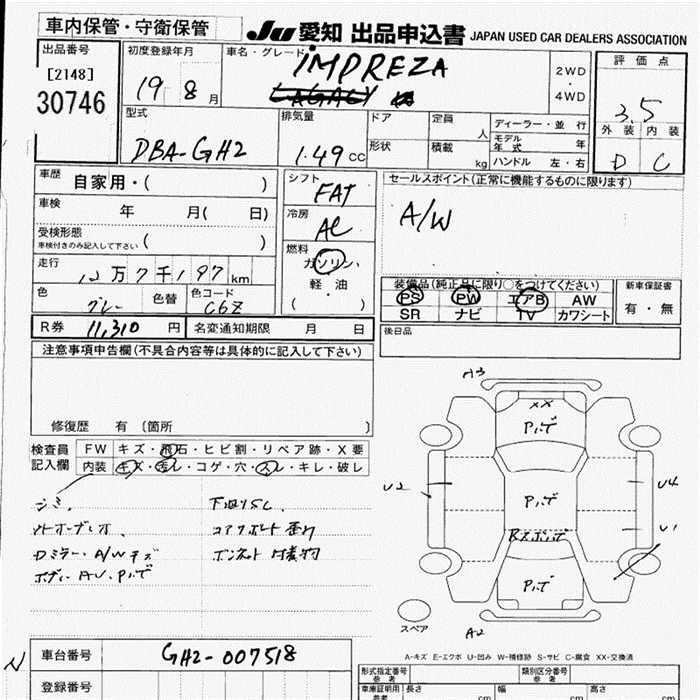 車内保管・守衛保管
JU 愛知 出品申込書 JAPAN USED CAR DEALERS ASSOCIATION
出品番号
[2148]
30746
初度登録年月
19 8 月
車名・グレード
IMPREZA
2WD
・
4WD
評価点
3.5
外装 内装
D C
型式
DBA-GH2
排気量
1.49 cc
ドア
形状
定員 人
積載 kg
ディーラー・並行
モデル年式 年
ハンドル 左・右
車歴 自家用・( )
車検 年 月( 日)
受検形態
車検付きのみ記入して下さい ( )
走行
12万7千197 km
色 グレー
色替
色コード C6Z
シフト FAT
冷房 AC
燃料
ガソリン
軽油
( ・ )
セールスポイント(正常に機能するものに限ります)
A/W
装備品(純正品に限り○をつけてください)
PS PW エアB AW
SR ナビ TV カワシート
新車保証書
有・無
後日品
R券 11,310 円 名変通知期限 月 日
注意事項申告欄(不具合内容等は具体的に記入して下さい)
修復歴 有 〔箇所 〕
検査員記入欄
FW キズ・飛石・ヒビ割・リペア跡・X要
内装 キズ・汚レ・コゲ・穴・スレ・キレ・破レ
下回りSC.
コアサポート歪み
Dミラー・A/Wキズ
ボンネット
ボディー AU.
A3
XX
U2
U4
U1
A2
スペア
A-キズ E-エクボ U-凹み W-補修跡 S-サビ C-腐食 XX-交換済
車台番号 GH2-007518
登録番号
形式指定番号 参考
類別区分番号 参考
車庫証明用 参考 長さ cm 幅 cm 高さ cm